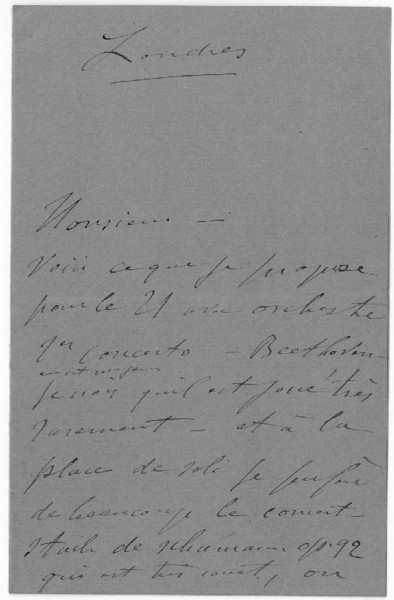 Londres
Monsieur —
Voici ce que je propose
pour le 21 avec orchestre
1er Concerto — Beethoven —
en ut majeur
je crois qu'il est joué très
rarement — et à la
place de soli je préfère
de beaucoup le concert-
stück de Schumann op. 92
qui est très court, ou